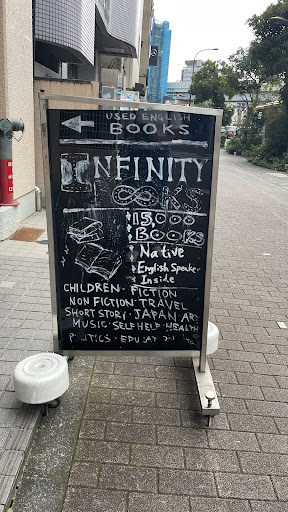 USED ENGLISH
BOOKS
INFINITY
BOOKS
15,000
BOOKS
Native
English Speaker
Inside
CHILDREN · FICTION
NON FICTION · TRAVEL
SHORT STORY · JAPAN ART
MUSIC · SELF HELP · HEALTH
POLITICS · EDUCATION